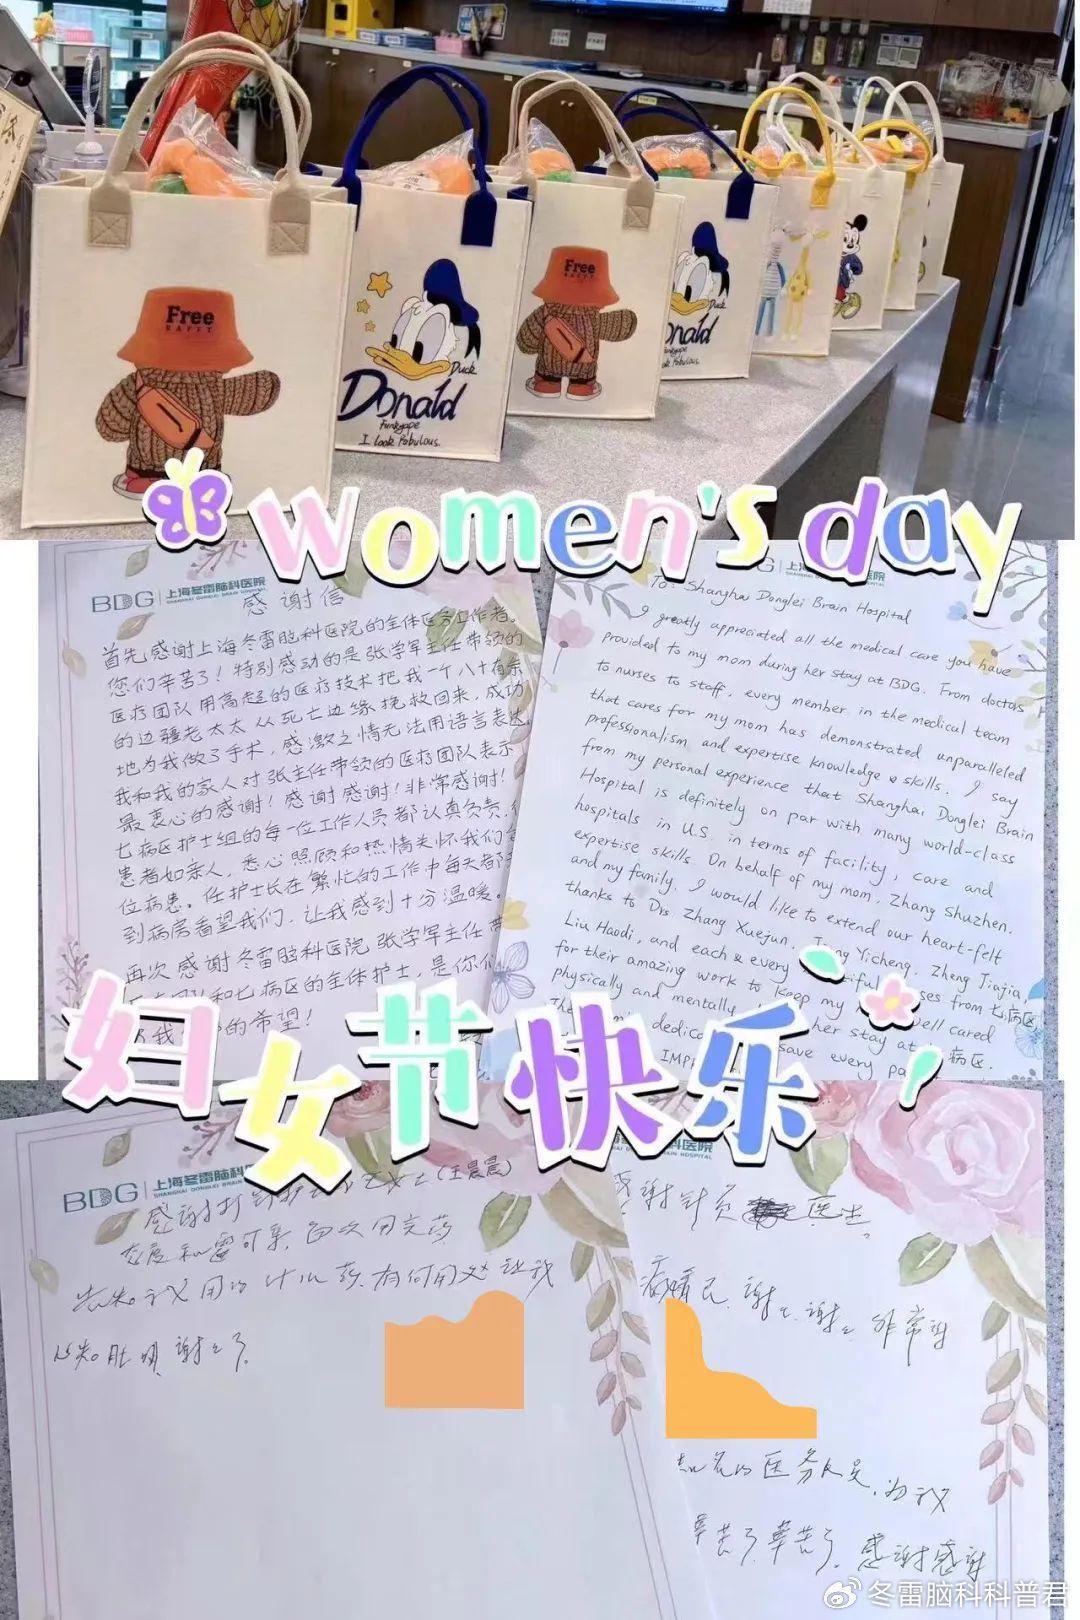 Free
RAFFT
Duck
Donald
Funkyape
I Look Fabulous.
Free
Duck
Women's day
BDG 上海冬雷脑科医院
SHANGHAI DONGLEI BRAIN HOSPITAL
感谢信
首先感谢上海冬雷脑科医院的全体医务工作者。
您们辛苦了！特别感动的是张学军主任带领的
医疗团队用高超的医疗技术把我一个八十有余
的边疆老太太从死亡边缘挽救回来，成功
地为我做了手术，感激之情无法用语言表达
我和我的家人对张主任带领的医疗团队表示
最衷心的感谢！感谢感谢！非常感谢！
七病区护士组的每一位工作人员都认真负责，
患者如亲人，悉心照顾和热情关怀我们
位病患。任护士长在繁忙的工作中每天都
到病房看望我们，让我感到十分温暖。
再次感谢冬雷脑科医院张学军主任带
和七病区的全体护士，是你们
我 的希望！
上海冬雷脑科医院
To: Shanghai Donglei Brain Hospital
I greatly appreciated all the medical care you have
provided to my mom during her stay at BDG. From doctors
to nurses to staff, every member in the medical team
that cares for my mom has demonstrated unparalleled
professionalism and expertise knowledge & skills. I say
from my personal experience that Shanghai Donglei Brain
Hospital is definitely on par with many world-class
hospitals in U.S. in terms of facility, care and
expertise skills. On behalf of my mom, Zhang Shuzhen,
and my family, I would like to extend our heart-felt
thanks to Drs. Zhang Xuejun, Yicheng, Zheng Jiajia,
Liu Haodi, and each & every from 七病区
for their amazing work to keep my well cared
physically and mentally her stay at 病区.
save every
妇女节快乐
BDG 上海冬雷脑科医院
SHANGHAI DONGLEI BRAIN HOSPITAL
感谢 护士 女士（王晨晨）
态度和蔼可亲，每次用完药
告知我用的什么药，有何用处让我
心知肚明，谢谢了
冬雷脑科医院
BRAIN HOSPITAL
感谢 医生
病 谢谢、谢谢、非常谢
的医务人员，为我
辛苦了，辛苦了，感谢感谢
冬雷脑科科普君